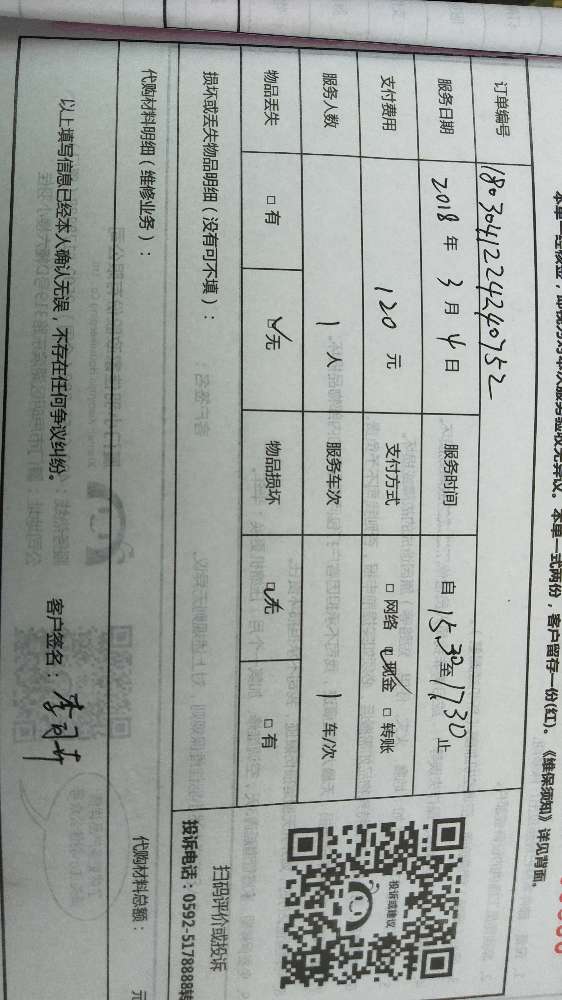 本单一式两份，客户留存一份(红)。《维保须知》详见背面。
订单编号 180304122424240752
服务日期 2018 年 3 月 4 日 服务时间 自 15.30 至 17.30 止
支付费用 120 元 支付方式 □ 网络 ☑ 现金 □ 转账
服务人数 1 人 服务车次 1 车/次
物品丢失 □ 有 ☑ 无 物品损坏 ☑ 无 □ 有
损坏或丢失物品明细（没有可不填）：
投诉或建议
扫码评价或投诉
投诉电话：0592-5178888转
代购材料明细（维修业务）： 代购材料总额： 元
以上填写信息已经本人确认无误，不存在任何争议纠纷。 客户签名：